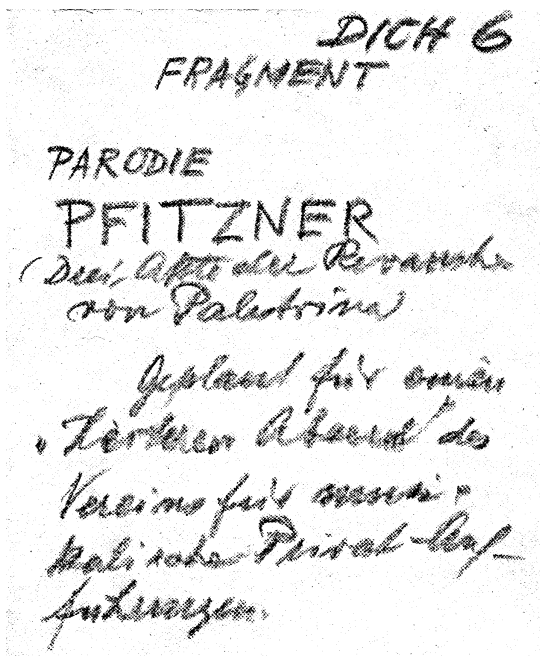 DICH 6
FRAGMENT
PARODIE
PFITZNER
(Drei Akte der Revanche
von Palestrina)
Geplant für einen
„Heiteren Abend" des
Vereins für musi-
kalische Privat-Auf-
führungen.